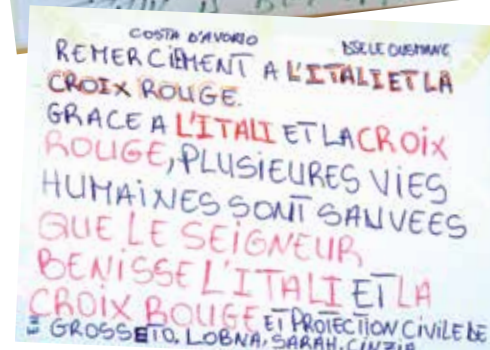 COSTA D'AVORIO
REMERCIEMENT A L'ITALI ET LA
CROIX ROUGE.
GRACE A L'ITALI ET LA CROIX
ROUGE, PLUSIEURES VIES
HUMAINES SONT SAUVEES
QUE LE SEIGNEUR
BENISSE L'ITALI ET LA
CROIX ROUGE ET PROTECTION CIVILE DE
GROSSETO, LOBNA, SARAH, CINZIA